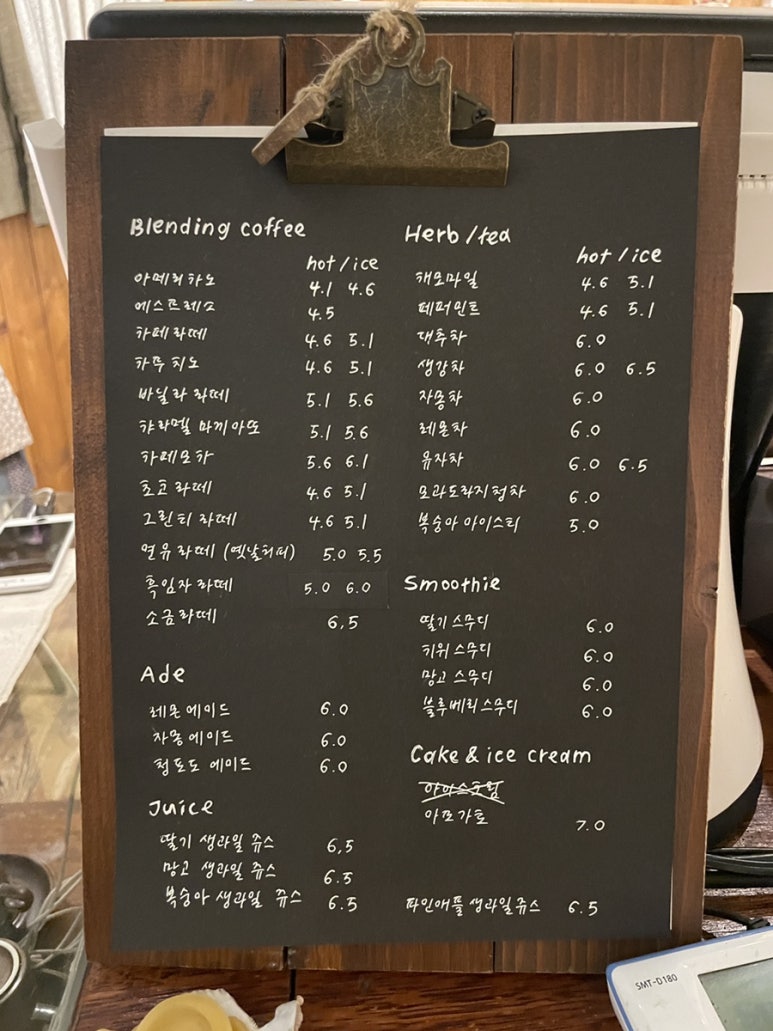 Blending coffee
hot / ice
아메리카노 4.1 4.6
에스프레소 4.5
카페라떼 4.6 5.1
카푸치노 4.6 5.1
바닐라 라떼 5.1 5.6
캬라멜 마끼아또 5.1 5.6
카페모카 5.6 6.1
초코라떼 4.6 5.1
그린티 라떼 4.6 5.1
연유라떼 (옛날커피) 5.0 5.5
흑임자라떼 5.0 6.0
소금라떼 6,5
Ade
레몬에이드 6.0
자몽에이드 6.0
청포도 에이드 6.0
Juice
딸기 생과일 쥬스 6,5
망고 생과일 쥬스 6.5
복숭아 생과일 쥬스 6.5
Herb / tea
hot / ice
캐모마일 4.6 5.1
페퍼민트 4.6 5.1
대추차 6.0
생강차 6.0 6.5
자몽차 6.0
레몬차 6.0
유자차 6.0 6.5
모과도라지청차 6.0
복숭아 아이스티 5.0
Smoothie
딸기스무디 6.0
키위스무디 6.0
망고 스무디 6.0
블루베리스무디 6.0
Cake & ice cream
아이스크림
아포가토 7.0
파인애플생과일쥬스 6.5
SMT-D180